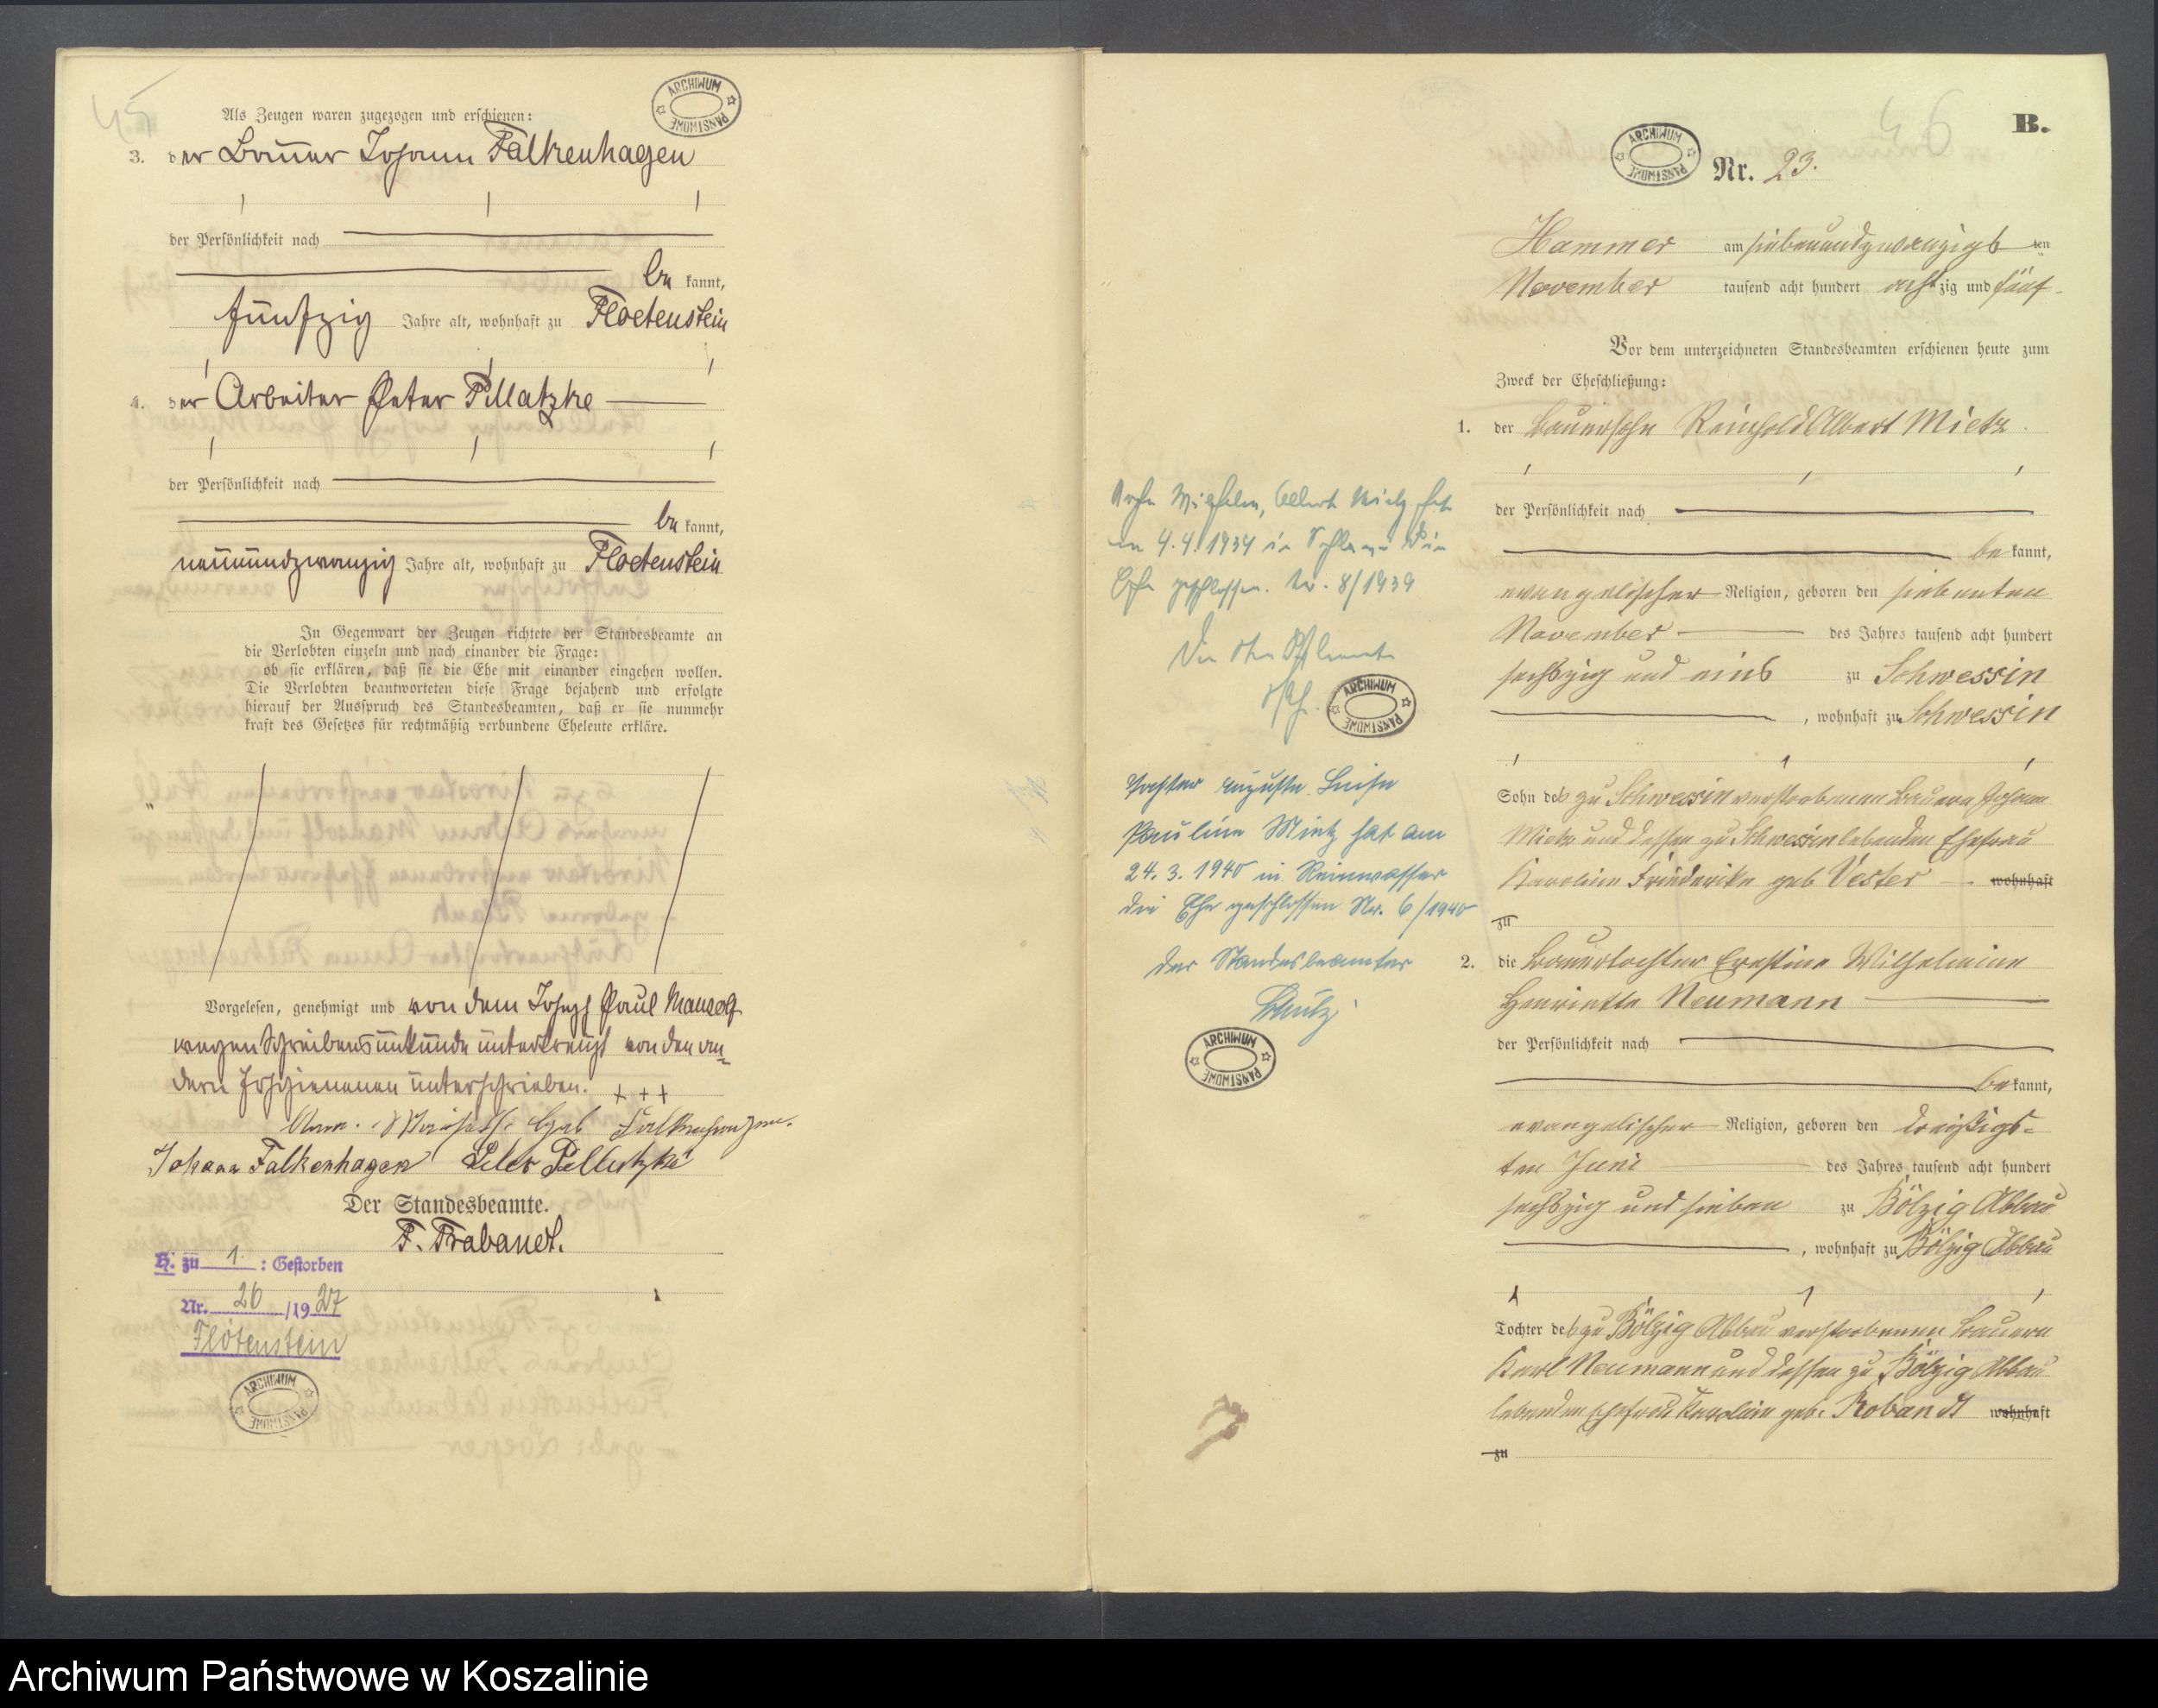 45
Als Zeugen waren zugezogen und erschienen:
ARCHIWUM PAŃSTWOWE
3. der Bauer Johann Falkenhagen
der Persönlichkeit nach
be kannt,
fünfzig Jahre alt, wohnhaft zu Floetenstein
4. der Arbeiter Peter Pillatzke
der Persönlichkeit nach
be kannt,
neunundzwanzig Jahre alt, wohnhaft zu Floetenstein
In Gegenwart der Zeugen richtete der Standesbeamte an
die Verlobten einzeln und nach einander die Frage:
ob sie erklären, daß sie die Ehe mit einander eingehen wollen.
Die Verlobten beantworteten diese Frage bejahend und erfolgte
hierauf der Ausspruch des Standesbeamten, daß er sie nunmehr
kraft des Gesetzes für rechtmäßig verbundene Eheleute erkläre.
Vorgelesen, genehmigt und von dem Joseph Paul Mausolf
wegen Schreibensunkunde unterkreuzt von den an-
dern Erschienenen unterschrieben. + + +
Geb Falkenhagen.
Johann Falkenhagen Peter Pillatzke
Der Standesbeamte.
F. Trabandt.
H. zu 1. : Gestorben
Nr. 26 /1927
Flötenstein
ARCHIWUM PAŃSTWOWE
46
B.
ARCHIWUM PAŃSTWOWE
Nr. 23.
Hammer am siebenundzwanzigs ten
November tausend acht hundert acht zig und fünf
Vor dem unterzeichneten Standesbeamten erschienen heute zum
Zweck der Eheschließung:
1. der Bauersohn Reinhold Albert Mietz
der Persönlichkeit nach
be kannt,
evangelischer Religion, geboren den siebenten
November des Jahres tausend acht hundert
sechszig und eins zu Schwessin
, wohnhaft zu Schwessin
Sohn des zu Schwessin verstorbenen Bauern Johann
Mietz und dessen zu Schwessin lebenden Ehefrau
Karoline Friederike geb Vester wohnhaft
zu
2. die Bauertochter Ernestine Wilhelmine
Henriette Neumann
der Persönlichkeit nach
be kannt,
evangelischer Religion, geboren den dreißigs-
ten Juni des Jahres tausend acht hundert
sechszig und sieben zu Bölzig Abbau
, wohnhaft zu Bölzig Abbau
Tochter des zu Bölzig Abbau verstorbenen Bauern
Karl Neumann und dessen zu Bölzig Abbau
lebenden Ehefrau Karoline geb. Robandt wohnhaft
zu
Albert Mietz hat
am 4.4.1939 in die
Ehe geschlossen. Nr. 8/1939
Der Standesbeamte
ARCHIWUM PAŃSTWOWE
Tochter Auguste Luise
Pauline Mietz hat am
24. 3. 1940 in Reinwasser
die Ehe geschlossen Nr. 6/1940
Der Standesbeamter
Schulz
ARCHIWUM PAŃSTWOWE
Archiwum Państwowe w Koszalinie